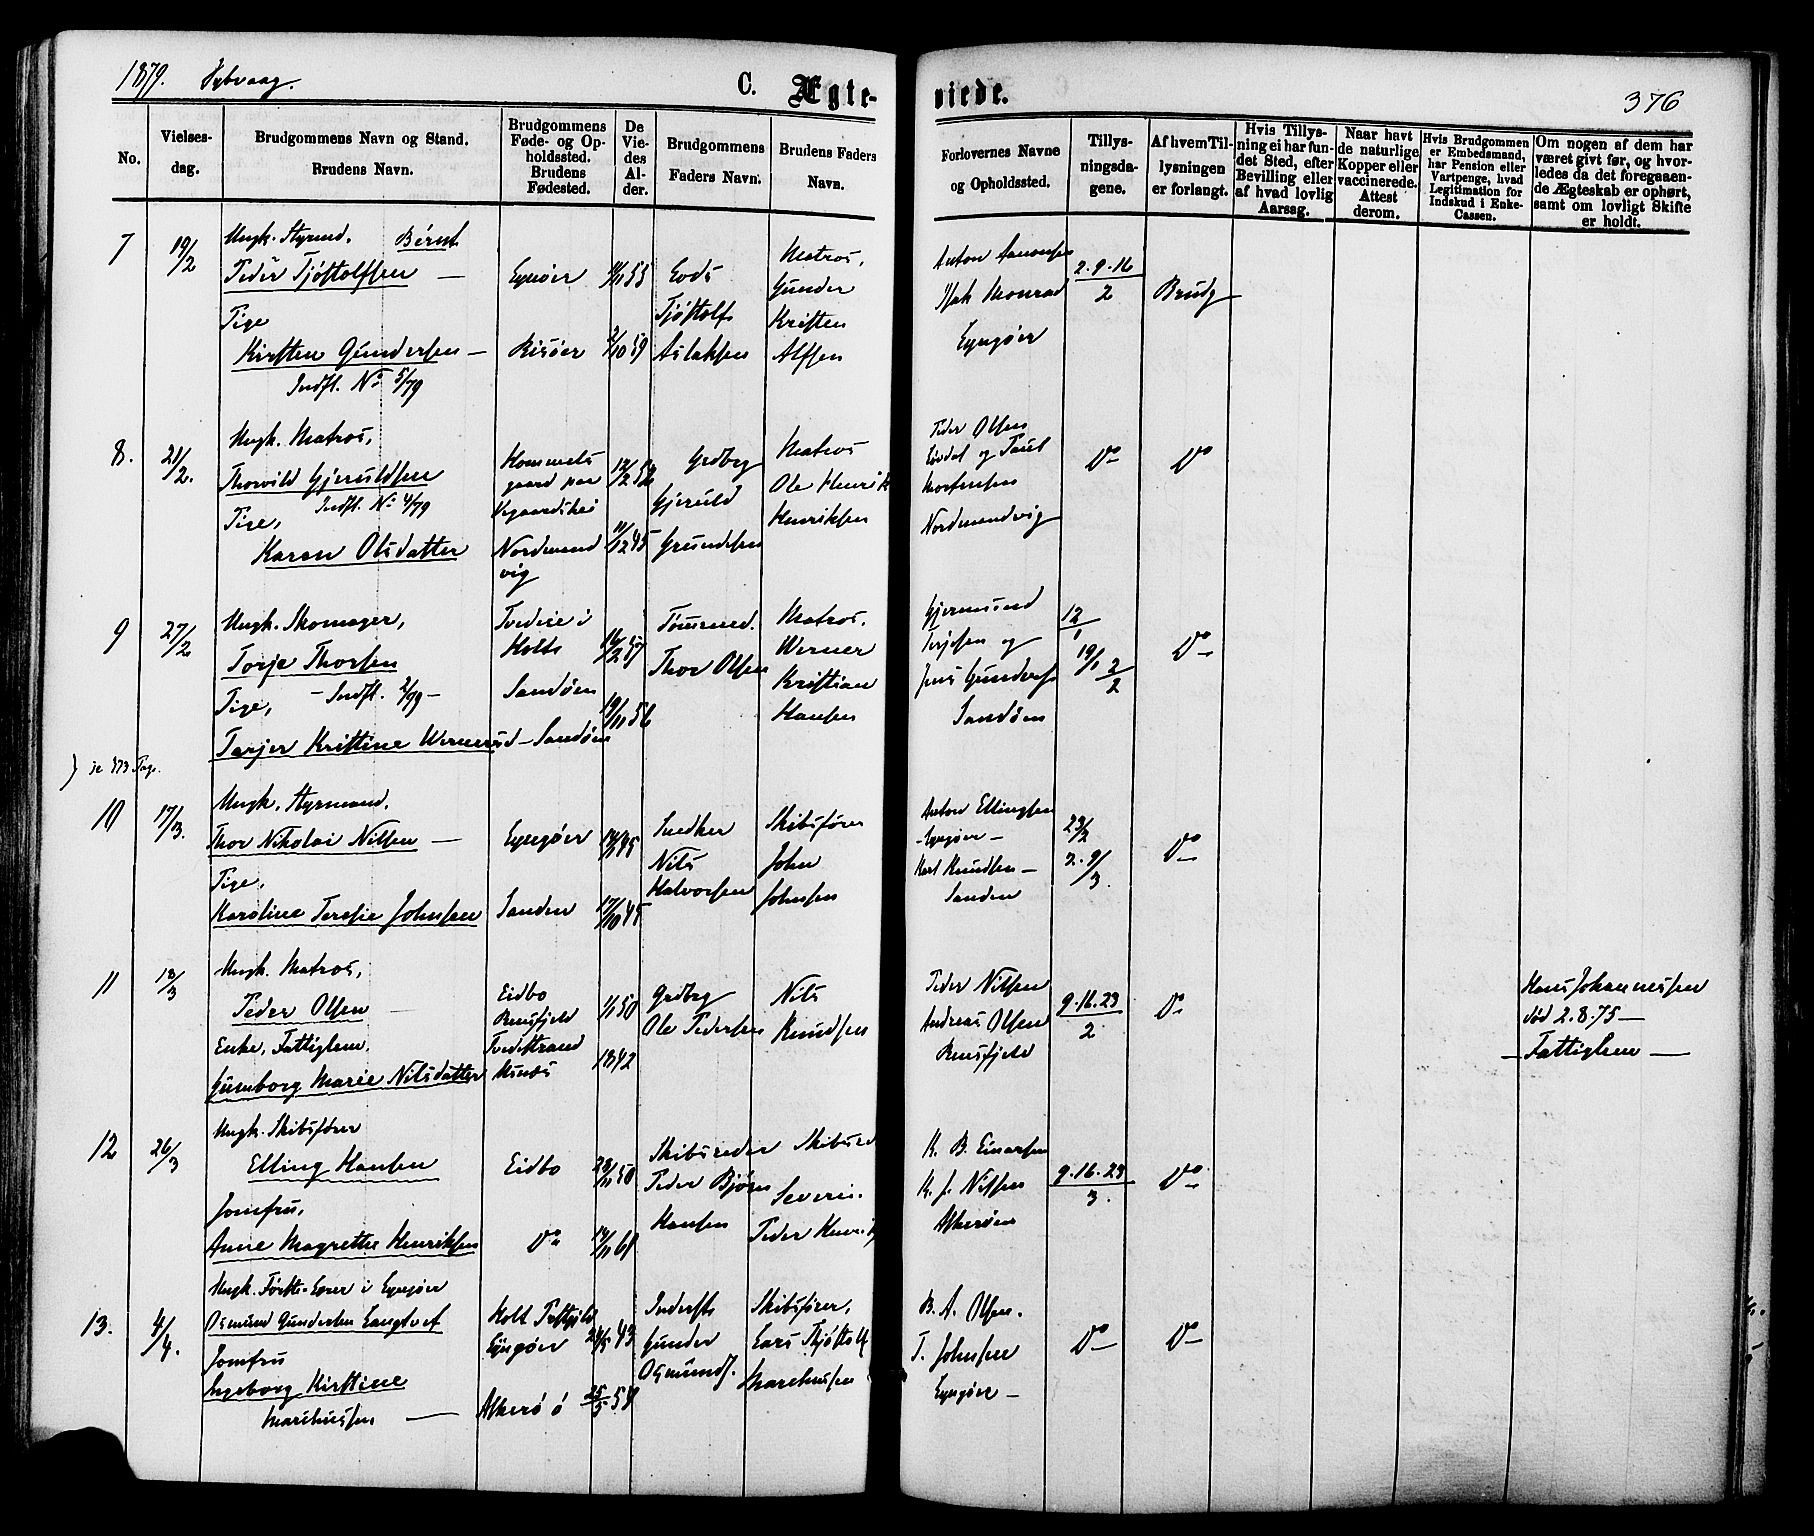 1879. Dybvaag.
C. Ægteviede.
376
No.
Vielsesdag.
Brudgommens Navn og Stand. Brudens Navn.
Brudgommens Føde- og Opholdssted. Brudens Fødested.
De Viedes Alder.
Brudgommens Faders Navn.
Brudens Faders Navn.
Forlovernes Navne og Opholdssted.
Tillysningsdagene.
Af hvem Tillysningen er forlangt.
Hvis Tillysning ei har fundet Sted, efter Bevilling eller af hvad lovlig Aarsag.
Naar havt de naturlige Kopper eller vaccinerede. Attest derom.
Hvis Brudgommen er Embedsmand, har Pension eller Vartpenge, hvad Legitimation for Indskud i Enke-Cassen.
Om nogen af dem har været givt før, og hvorledes da det foregaaende Ægteskab er ophørt, samt om lovligt Skifte er holdt.
7 19/2 Ungk. Styrmd. Bernt
Peder Tjøstolfsen — Lyngøer 55
Pige
Kirsten Gundersen — Risøer 2/10 59
Indfl. No 5/79
Tjøstolf
Aslaksen
Matros,
Gunder
Kristen
Alfsen
Anton Aanonsen
Isak Monrad
Lyngøer
2. 9. 16/2
Brudg
8. 21/2. Ungk. Matros,
Thorvild Gjeruldsen
Indfl. No 4/79
Pige,
Karen Olsdatter
Hommelsgaard paa
Nordmandvig
12/2 52
11/12 45
Grdbrg
Gjeruld
Grundesen
Matros
Ole Henrik
Henriksen
Peder Olsen
og Paul
Mortensen
Nordmandvig
Do Do
9 27/2 Ungk. Skomager,
Torje Thorsen
— Indfl. 2/79 —
Pige,
Tarjer Kristine Wernersd — Sandøen
Tvedene i
Holts
Sandøen
16/2 57
19/11 56
Tømmermd.
Thor Olsen
Matros.
Werner
Kristian
Hansen
Gjermund
Terjesen og
Jens Gunders
Sandøen
12/1
19/1 2/2
Do
) se 373 Pag.
10 17/3. Ungk. Styrmand.
Thor Nikolai Nilsen —
Pige,
Karoline Teresie Johnsen
Lyngøer
Sanden
45
17/10 45
Snedker
Nils
Halvorsen
Skibsfører
John
Johnsen
Anton Ellingsen
— Lyngøer —
Karl Knudsen —
Sanden
23/2
2. 9/3.
Do
11 18/3 Ungk. Matros,
Peder Olsen —
Enke, Fattiglem,
Gunborg Marie Nilsdatter
Eidbo
Rensfjeld
Tvedestrand
1/1 50
1842
Grdbrg
Ole Pedersen
Nils
Knudsen
Peder Nilsen
Andreas Olsen
Rensfjeld
9. 16. 23/2
Do
Hans Johannessen
död 2.8.75 —
— Fattiglem —
12 26/3 Ungk. Skibsfører
Elling Hansen
Jomfru,
Anne Magrethe Henriksen
Eidbo
Do
28/11 50
Skibsreder
Peder Bjørn
Hansen
Skibsred
Severin
Peder Henrik
K. B. Einarsen
K. J. Nilsen
Askerøen
9. 16. 23/3.
Do
13. 4/4. Ungk. i Lyngøer
Osmund Gundersen Langtvet
Jomfru
Ingeborg Kirstine
Marchussen —
Holt
Lyngøer
Askerø ö
43
25/5 58
Gunder
Osmunds.
Skibsfører,
Lars Tjøstolf
Marchussen
B. A. Olsen.
T. Johnsen
Lyngøer —
Do Do